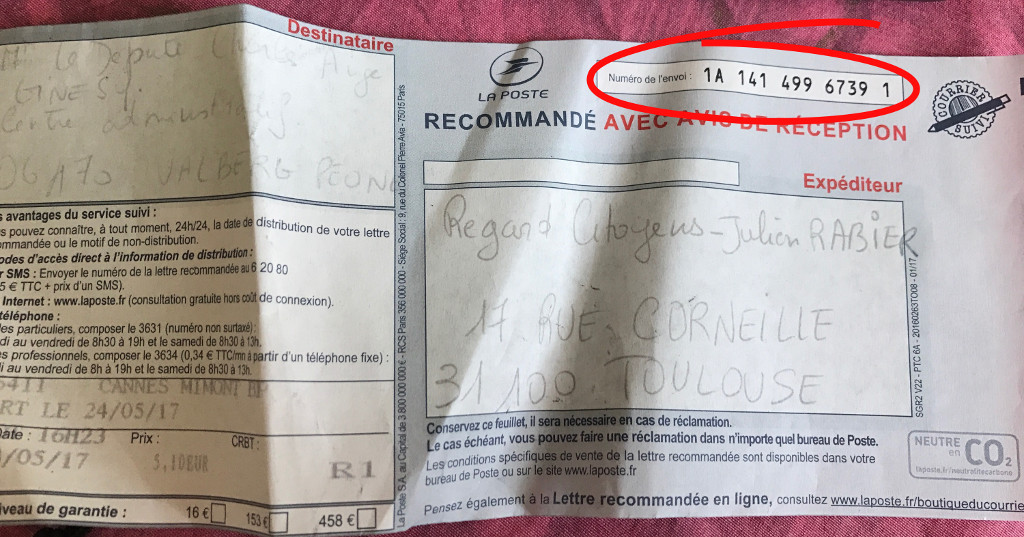 Destinataire
Mr Le Député Charles Ange
GINESY.
Centre administratif
06470 VALBERG PEONE
s avantages du service suivi :
s pouvez connaître, à tout moment, 24h/24, la date de distribution de votre lettre
ommandée ou le motif de non-distribution.
odes d'accès direct à l'information de distribution :
r SMS : Envoyer le numéro de la lettre recommandée au 6 20 80
5 € TTC + prix d'un SMS).
Internet : www.laposte.fr (consultation gratuite hors coût de connexion).
téléphone :
les particuliers, composer le 3631 (numéro non surtaxé) :
di au vendredi de 8h30 à 19h et le samedi de 8h30 à 13h.
es professionnels, composer le 3634 (0,34 € TTC/mn à partir d'un téléphone fixe) :
di au vendredi de 8h à 19h et le samedi de 8h30 à 13h.
6411 CANNES MIMONT BP
RT LE 24/05/17
Date : 16H23 Prix : CRBT :
/05/17 5,10EUR R1
iveau de garantie : 16 € 153 € 458 €
La Poste S.A. au Capital de 3 800 000 000 € - RCS Paris 356 000 000 - Siège Social : 9, rue du Colonel Pierre Avia - 75015 Paris
LA POSTE
Numéro de l'envoi : 1A 141 499 6739 1
COURRIER
SUIVI
RECOMMANDÉ AVEC AVIS DE RÉCEPTION
Expéditeur
Regard Citoyens - Julien RABIER
17. RUE CORNEILLE
31100. TOULOUSE
SGR2 V22 - PTC 6A - 20160263T008 - 01/17
Conservez ce feuillet, il sera nécessaire en cas de réclamation.
Le cas échéant, vous pouvez faire une réclamation dans n'importe quel bureau de Poste.
Les conditions spécifiques de vente de la lettre recommandée sont disponibles dans votre
bureau de Poste ou sur le site www.laposte.fr
NEUTRE
en CO2
laposte.fr/neutralitecarbone
Pensez également à la Lettre recommandée en ligne, consultez www.laposte.fr/boutiqueducourrie